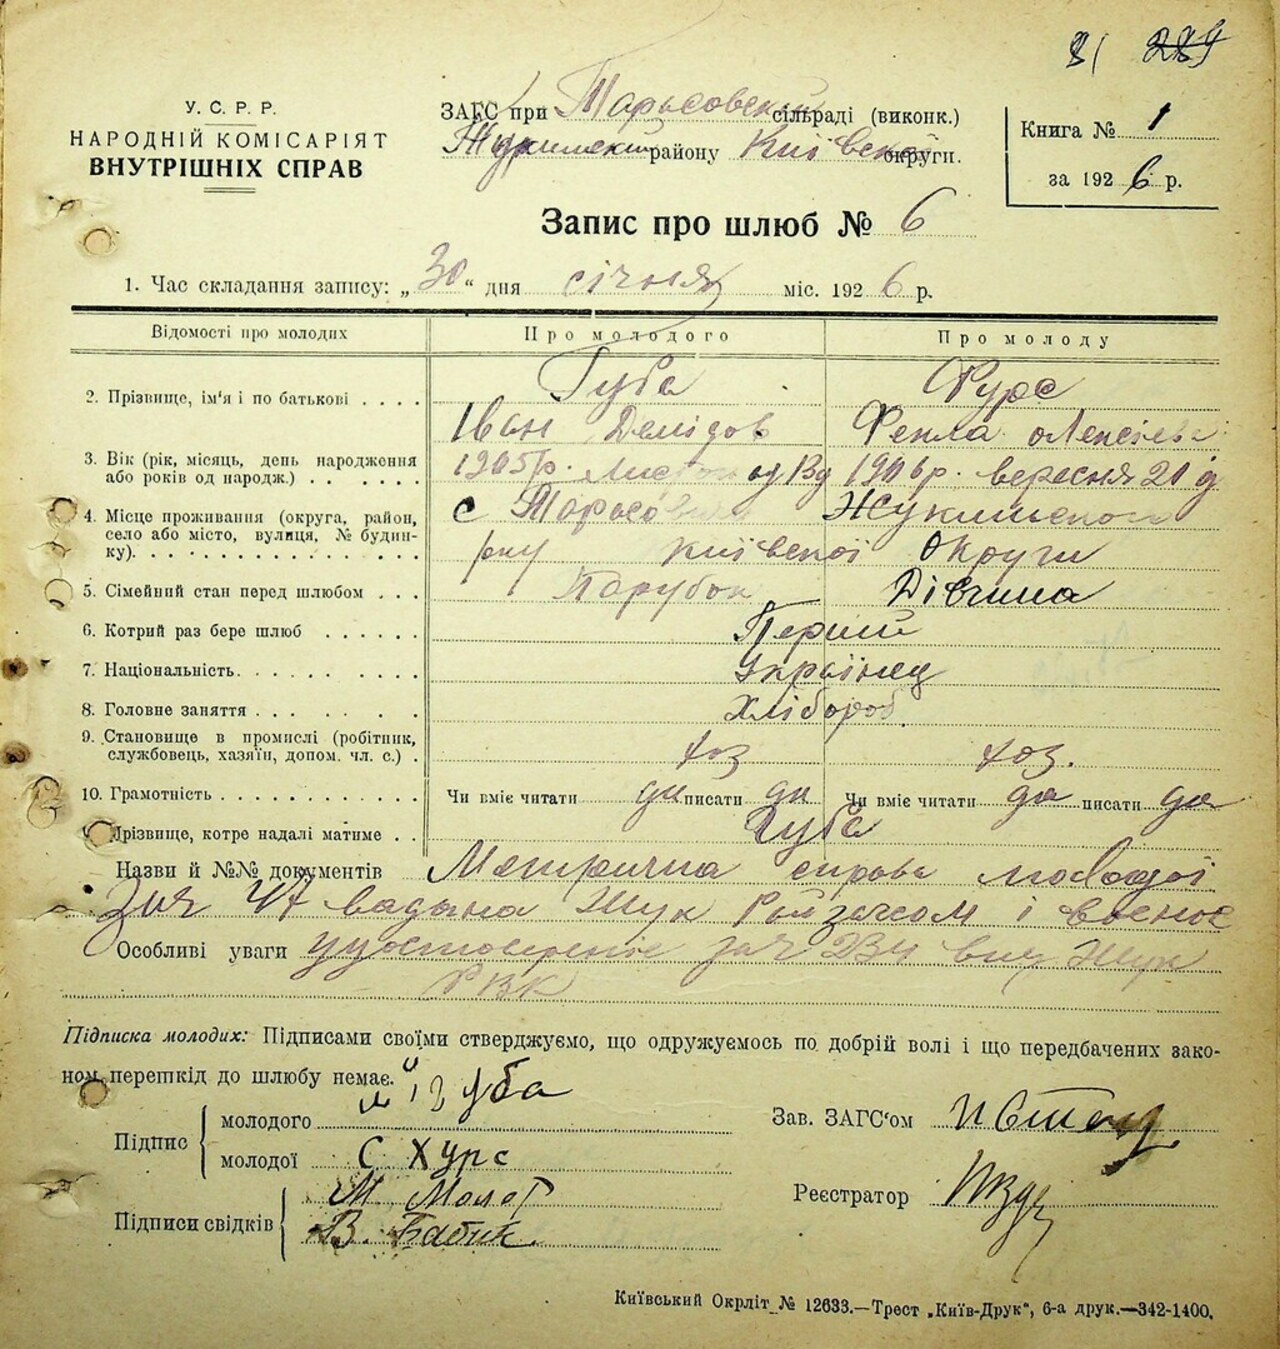 81 289
У. С. Р. Р.
НАРОДНІЙ КОМІСАРІЯТ
ВНУТРІШНІХ СПРАВ
ЗАГС при Тарасовскій сільраді (виконк.)
району Київскої округи.
Книга № 1
за 1926 р.
Запис про шлюб № 6
1. Час складання запису: „30“ дня січня міс. 1926 р.
Відомості про молодих Про молодого Про молоду
2. Прізвище, ім'я і по батькові . . . . Губа Фурс
Іван Демідов Фекла Олексієва
3. Вік (рік, місяць, день народження
або років од народж.) . . . . . . 1905 р. 1906 р. вересня 21 д
4. Місце проживання (округа, район,
село або місто, вулиця, № будин-
ку). . . . . . . . . . . . . . . . с Тарасовки Жукинського
рну київскої Округи
5. Сімейний стан перед шлюбом . . . Парубок Дівчина
6. Котрий раз бере шлюб . . . . . . Перший
7. Національність. . . . . . . . . . Українец
8. Головне заняття . . . . . . . . Хлібороб
9. Становище в промислі (робітник,
службовець, хазяїн, допом. чл. с.) . хоз хоз.
10. Грамотність . . . . . . . . . . . . Чи вміє читати да писати да Чи вміє читати да писати да
Прізвище, котре надалі матиме . . Губа
Назви й №№ документів Метрична справа молодої
за ч 47 видана Жук Райзагсом і воєнное
Особливі уваги удостоверение за ч 234 вид Жук
РВК
Підписка молодих: Підписами своїми стверджуємо, що одружуємось по добрій волі і що передбачених зако-
ном перешкід до шлюбу немає.
Підпис молодого Губа
молодої С Хурс
Підписи свідків М Молот
В. Бабик
Зав. ЗАГС'ом
Реєстратор
Київський Окрліт № 12633.—Трест „Київ-Друк“, 6-а друк.—342-1400.